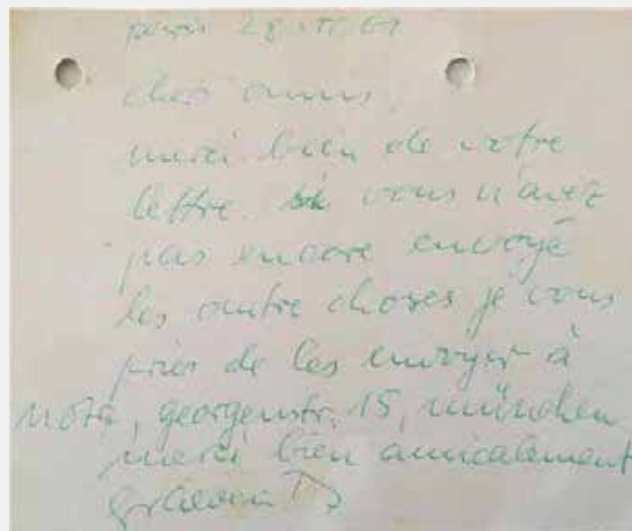 paris 28.11.69
cher amis,
merci bien de votre
lettre. si vous n'avez
pas encore envoyé
les autre choses je vous
pries de les envoyer à
georgenstr. 15, münchen
merci bien amicalement